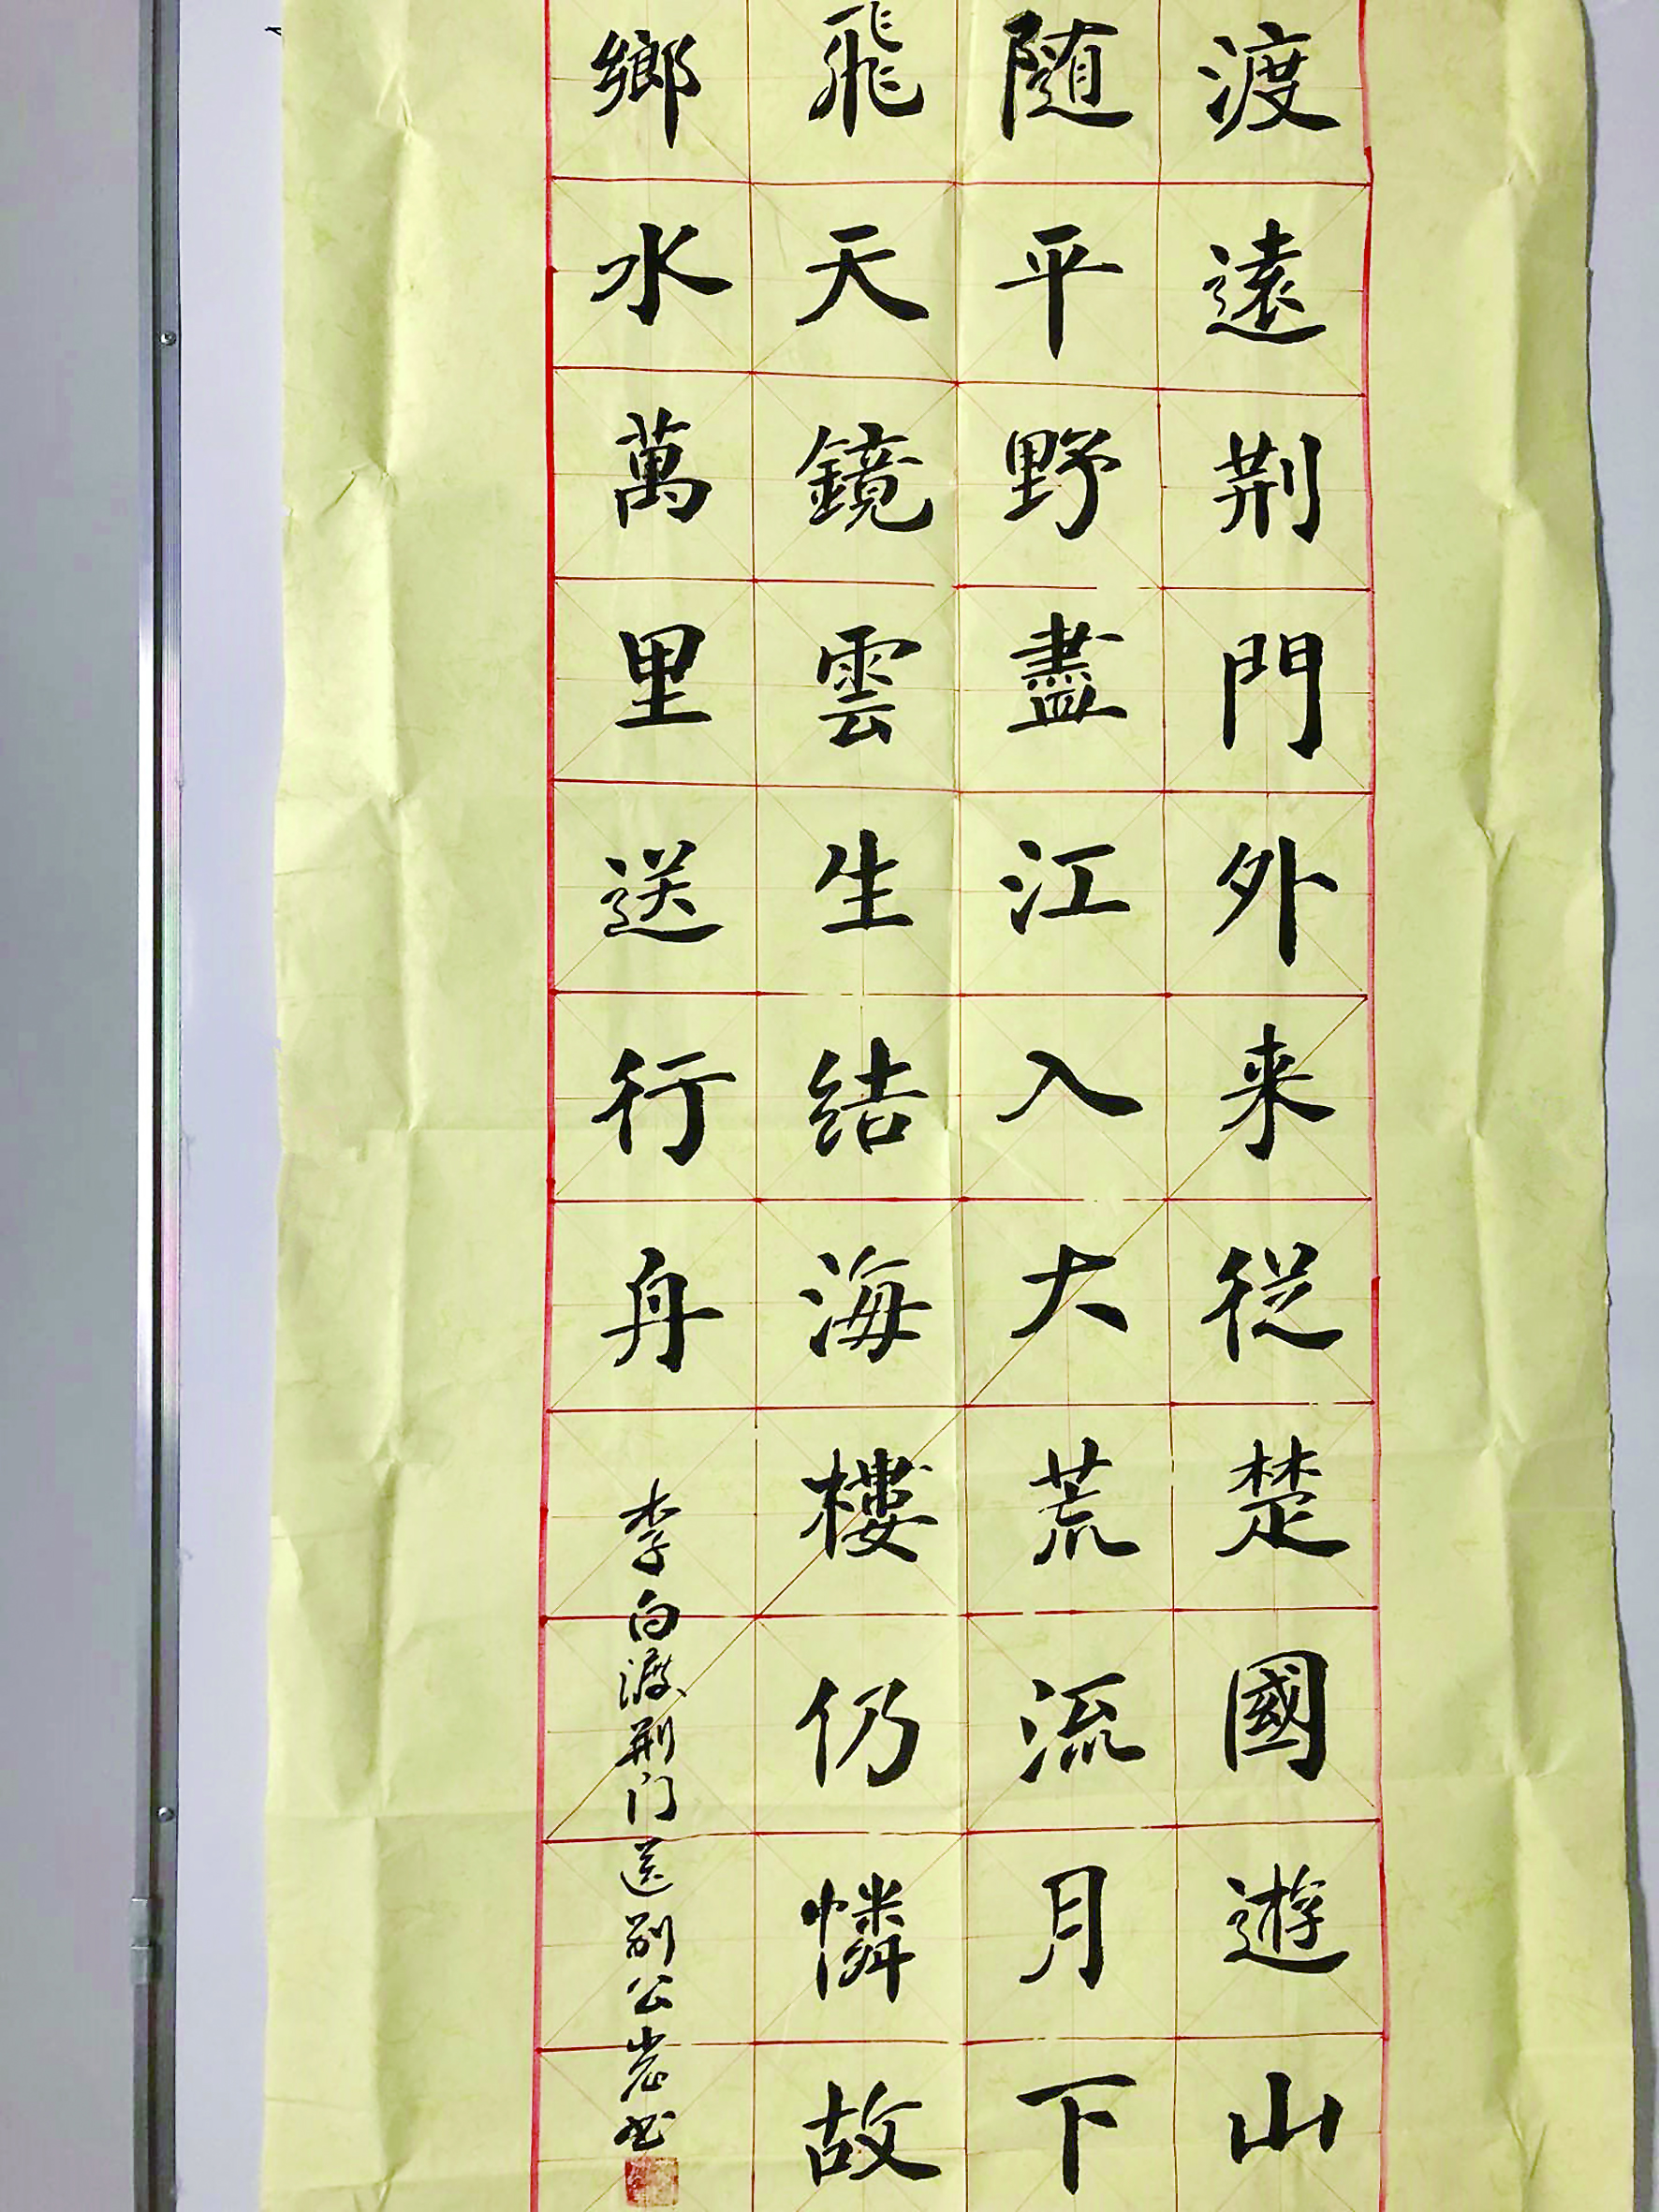 渡遠荆門外来従楚國遊山
随平野盡江入大荒流月下
飛天鏡雲生结海樓仍憐故
鄉水萬里送行舟
李白渡荆门送别公岩书